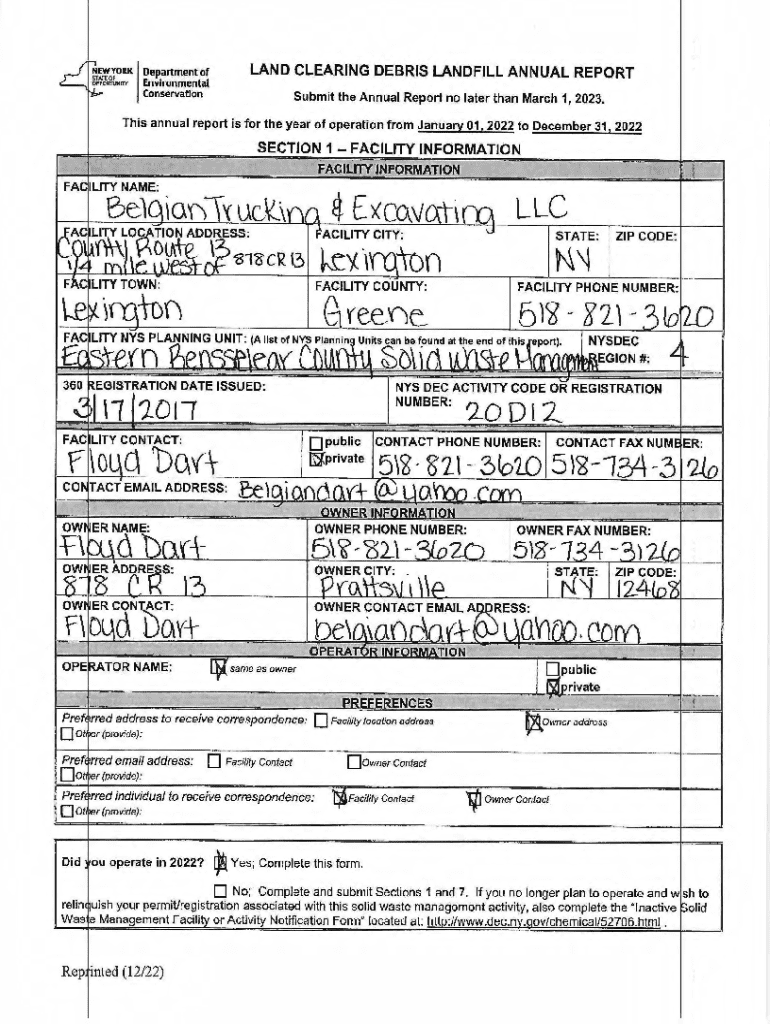 NEW YORK
STATE OF
OPPORTUNITY
Department of
Environmental
Conservation
LAND CLEARING DEBRIS LANDFILL ANNUAL REPORT
Submit the Annual Report no later than March 1, 2023.
This annual report is for the year of operation from January 01, 2022 to December 31, 2022
SECTION 1 – FACILITY INFORMATION
FACILITY INFORMATION
FACILITY NAME:
Belgian Trucking & Excavating LLC
FACILITY LOCATION ADDRESS: FACILITY CITY: STATE: ZIP CODE:
County Route 13
1/4 mile west of 878 CR 13 Lexington NY
FACILITY TOWN: FACILITY COUNTY: FACILITY PHONE NUMBER:
Lexington Greene 518-821-3620
FACILITY NYS PLANNING UNIT: (A list of NYS Planning Units can be found at the end of this report). NYSDEC
Eastern Rensselear County Solid Waste Management REGION #: 4
360 REGISTRATION DATE ISSUED: NYS DEC ACTIVITY CODE OR REGISTRATION
NUMBER: 20D12
3/17/2017
FACILITY CONTACT: public CONTACT PHONE NUMBER: CONTACT FAX NUMBER:
Floyd Dart private 518-821-3620 518-734-3126
CONTACT EMAIL ADDRESS: Belgiandart@yahoo.com
OWNER INFORMATION
OWNER NAME: OWNER PHONE NUMBER: OWNER FAX NUMBER:
Floyd Dart 518-821-3620 518-734-3126
OWNER ADDRESS: OWNER CITY: STATE: ZIP CODE:
878 CR 13 Prattsville NY 12468
OWNER CONTACT: OWNER CONTACT EMAIL ADDRESS:
Floyd Dart belgiandart@yahoo.com
OPERATOR INFORMATION
OPERATOR NAME: same as owner public
private
PREFERENCES
Preferred address to receive correspondence: Facility location address Owner address
Other (provide):
Preferred email address: Facility Contact Owner Contact
Other (provide):
Preferred individual to receive correspondence: Facility Contact Owner Contact
Other (provide):
Did you operate in 2022? Yes; Complete this form.
No; Complete and submit Sections 1 and 7. If you no longer plan to operate and wish to
relinquish your permit/registration associated with this solid waste management activity, also complete the "Inactive Solid
Waste Management Facility or Activity Notification Form" located at: http://www.dec.ny.gov/chemical/52706.html .
Reprinted (12/22)